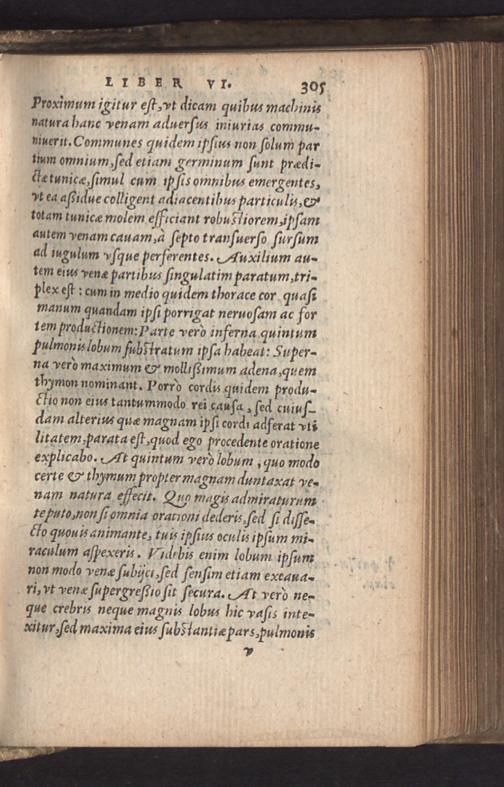 LIBER VI. 305
Proximum igitur est, vt dicam quibus machinis
natura hanc venam aduersus iniurias commu-
niuerit. Communes quidem ipsius non solum par
tium omnium, sed etiam germinum sunt prædi-
ctæ tunicæ, simul cum ipsis omnibus emergentes,
vt ea aßidue colligent adiacentibus particulis, &
totam tunicæ molem efficiant robustiorem, ipsam
autem venam cauam, à septo transuerso sursum
ad iugulum vsque perferentes. Auxilium au-
tem eius venæ partibus singulatim paratum, tri-
plex est: cum in medio quidem thorace cor quasi
manum quandam ipsi porrigat neruosam ac for
tem productionem: Parte verò inferna quintum
pulmonis lobum substratum ipsa habeat: Super-
na verò maximum & mollißimum adena, quem
thymon nominant. Porrò cordis quidem produ-
ctio non eius tantummodo rei causa, sed cuius-
dam alterius quæ magnam ipsi cordi adferat vti
litatem, parata est, quod ego procedente oratione
explicabo. At quintum verò lobum, quo modo
certe & thymum propter magnam duntaxat ve-
nam natura effecit. Quo magis admiraturum
te puto, non si omnia orationi dederis, sed si disse-
cto quouis animante, tuis ipsius oculis ipsum mi-
raculum aspexeris. Videbis enim lobum ipsum
non modo venæ subijci, sed sensim etiam excaua-
ri, vt venæ supergreßio sit secura. At verò ne-
que crebris neque magnis lobus hic vasis inte-
xitur, sed maxima eius substantiæ pars, pulmonis
v